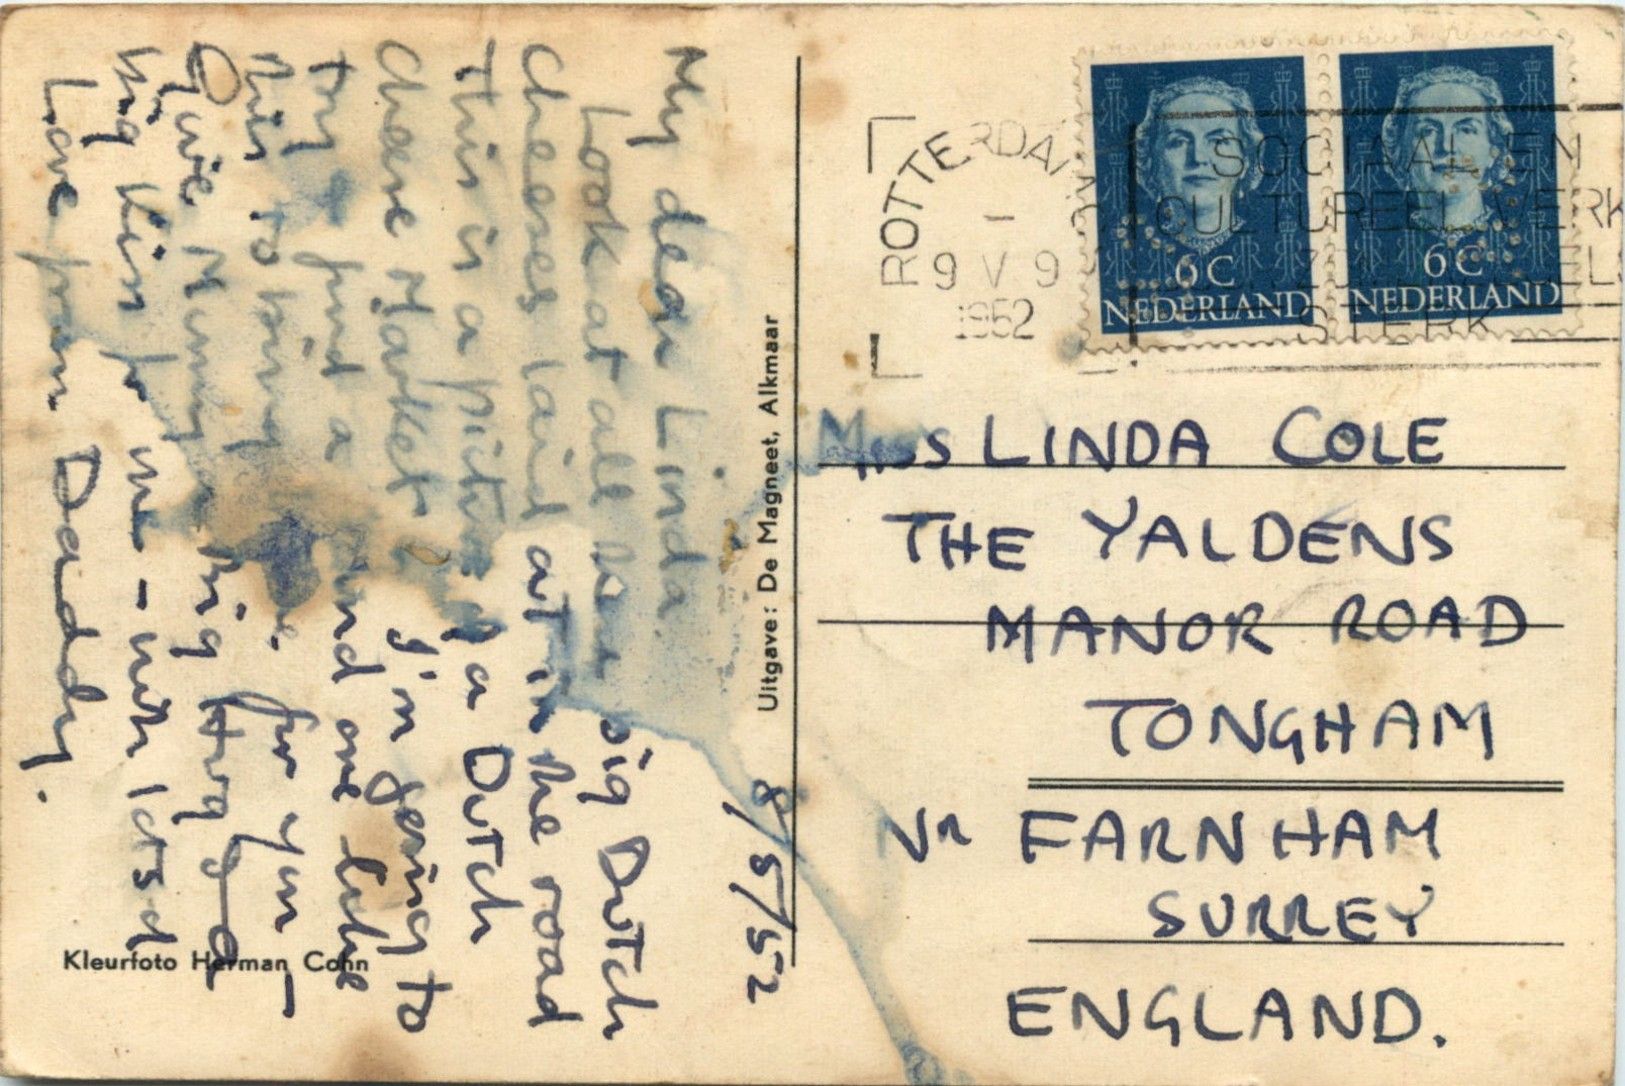 8/5/52
My dear Linda
Look at all these big Dutch
Cheeses laid out in the road
This is a picture of a Dutch
Cheese Market I'm going to
try & find a and one like
this to bring for you –
Give Mummy a big Hug & a
big kiss for me – with lots of
Love from Daddy.
Kleurfoto Herman Cohn
Uitgave: De Magneet, Alkmaar
ROTTERDAM
9 V 9
1952
SOCIAAL EN
CULTUREEL WERK
STERK
6 C
NEDERLAND
6 C
NEDERLAND
Miss LINDA COLE
THE YALDENS
MANOR ROAD
TONGHAM
Nr FARNHAM
SURREY
ENGLAND.